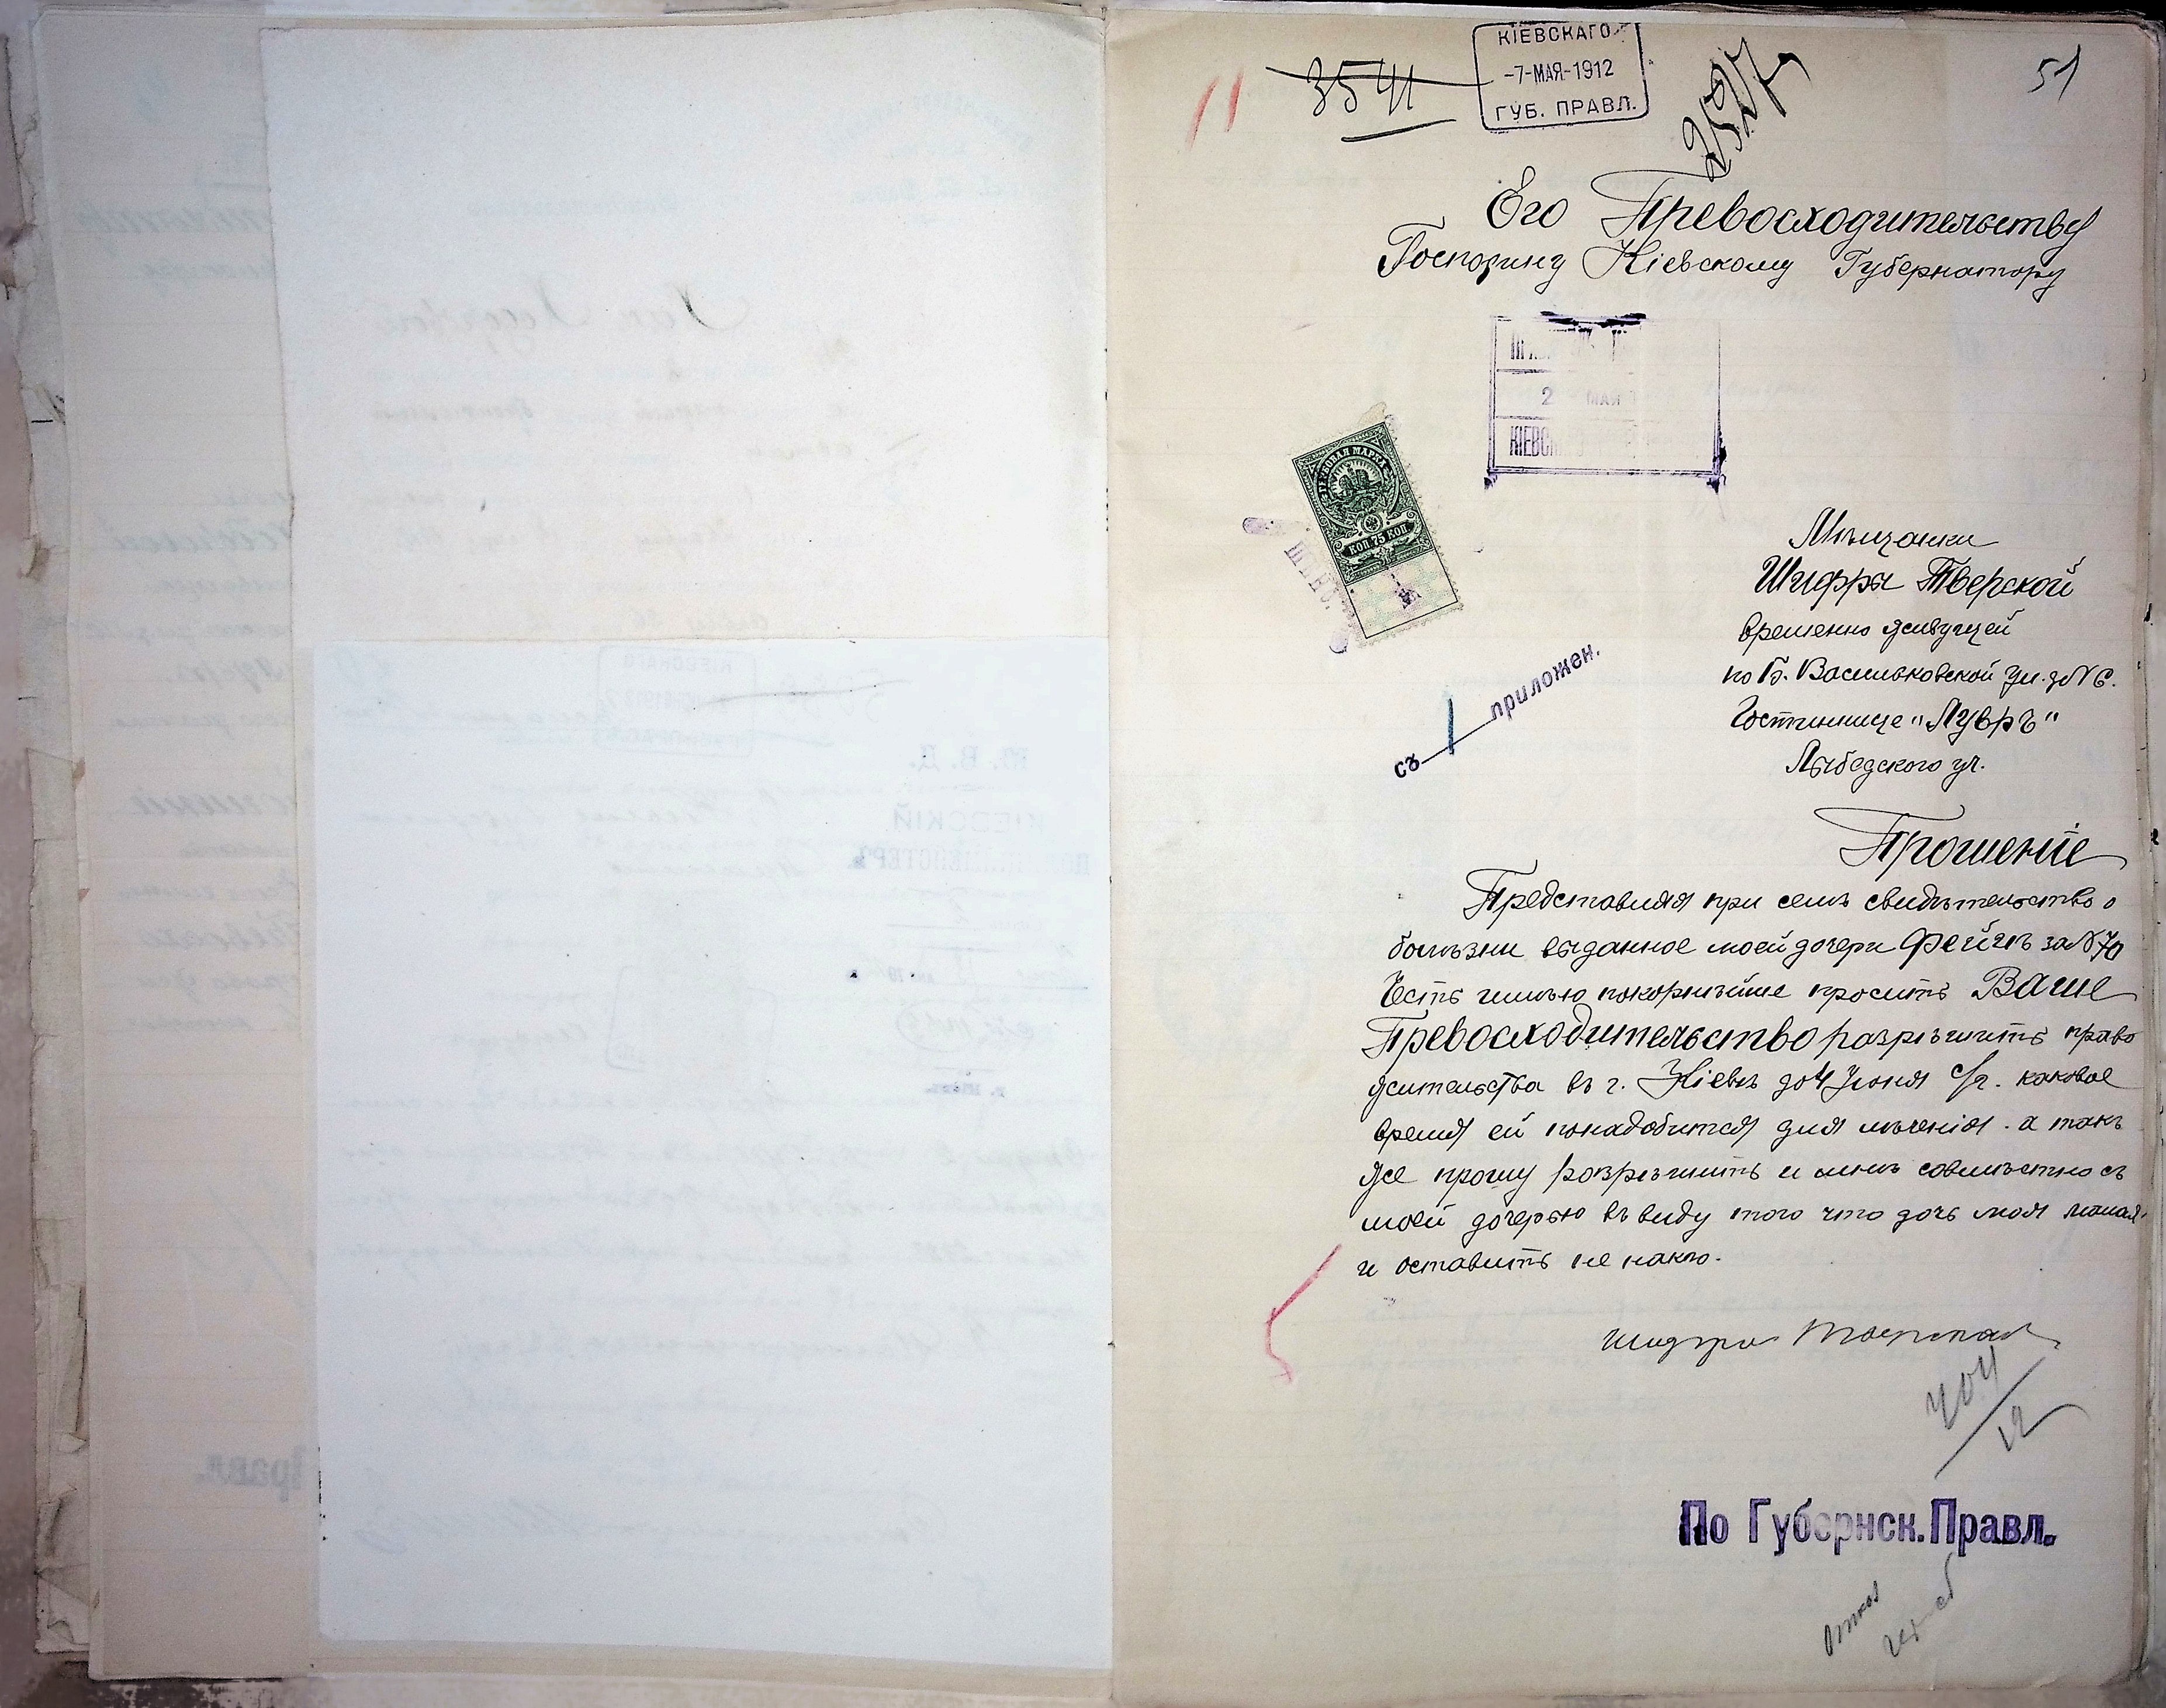 3541
КІЕВСКАГО
-7-МАЯ-1912
ГУБ. ПРАВЛ.
51
Его Превосходительству
Господину Кіевскому Губернатору
2 МАЯ
КІЕВС
ГЕРБОВАЯ МАРКА
КОП 75 КОП
Мѣщанки
Шифры Тверской
временно живущей
по Б. Васильковской ул. д № 6.
Гостиннице "Лувръ"
Лыбедского уч.
съ 1 приложен.
Прошеніе
Представляя при семъ свидѣтельство о
болѣзни выданное моей дочери Фейгѣ за № 70
Честь имѣю покорнѣйше просить Ваше
Превосходительство разрѣшить право
жительства въ г. Кіевѣ до 4 Іюня с/г. каковое
время ей понадобится для лѣченія. а такъ
же прошу разрѣшить и мнѣ совмѣстно съ
моей дочерью въ виду того что дочь моя малая
и оставить не накого.
Шифра Тверская
404/12
По Губернск. Правл.